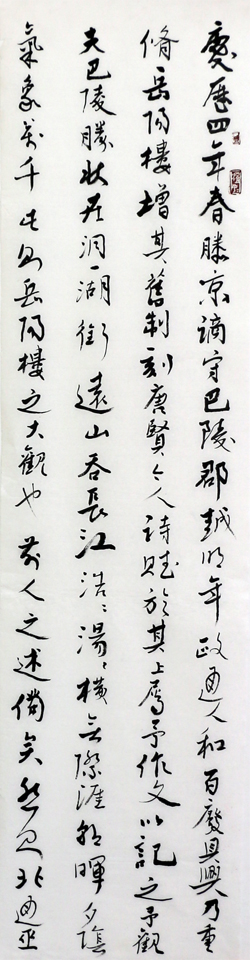 慶歷四年春滕京謫守巴陵郡越明年政通人和百廢具興乃重
脩岳陽樓增其舊制刻唐賢今人詩賦於其上屬予作文以記之予觀
夫巴陵勝狀在洞一湖銜遠山吞長江浩〻湯〻橫無際涯朝暉夕陰
氣象万千此則岳陽樓之大觀也前人之述備矣然則北通巫